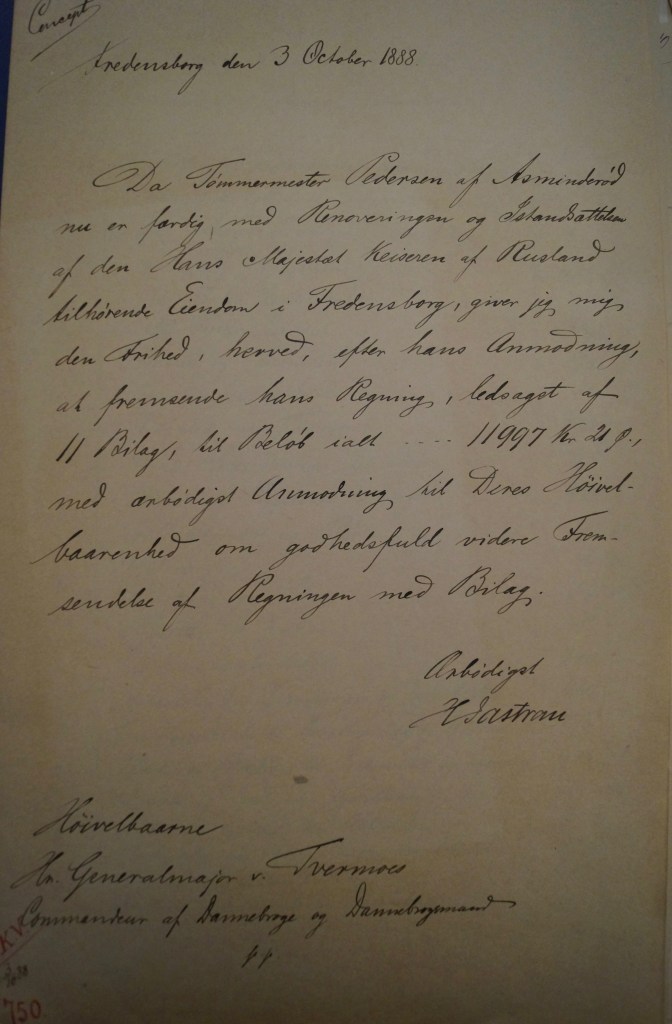 Concept
Fredensborg den 3 October 1888.
Da Tømmermester Pedersen af Asminderød
nu er færdig med Renoveringen og Istandsættelsen
af den Hans Majestæt Keiseren af Rusland
tilhørende Eiendom i Fredensborg, giver jeg mig
den Frihed, herved, efter hans Anmodning,
at fremsende hans Regning, ledsaget af
11 Bilag, til Beløb ialt .... 11997 Kr. 21 Ø.,
med ærbødigst Anmodning til Deres Høivel-
baarenhed om godhedsfuld videre Frem-
sendelse af Regningen med Bilag.
Ærbødigst
H Sastrau
Høivelbaarne
Hr. Generalmajor v. Tvermoes
Commandeur af Dannebroge og Dannebrogsmand
p p
KV
750